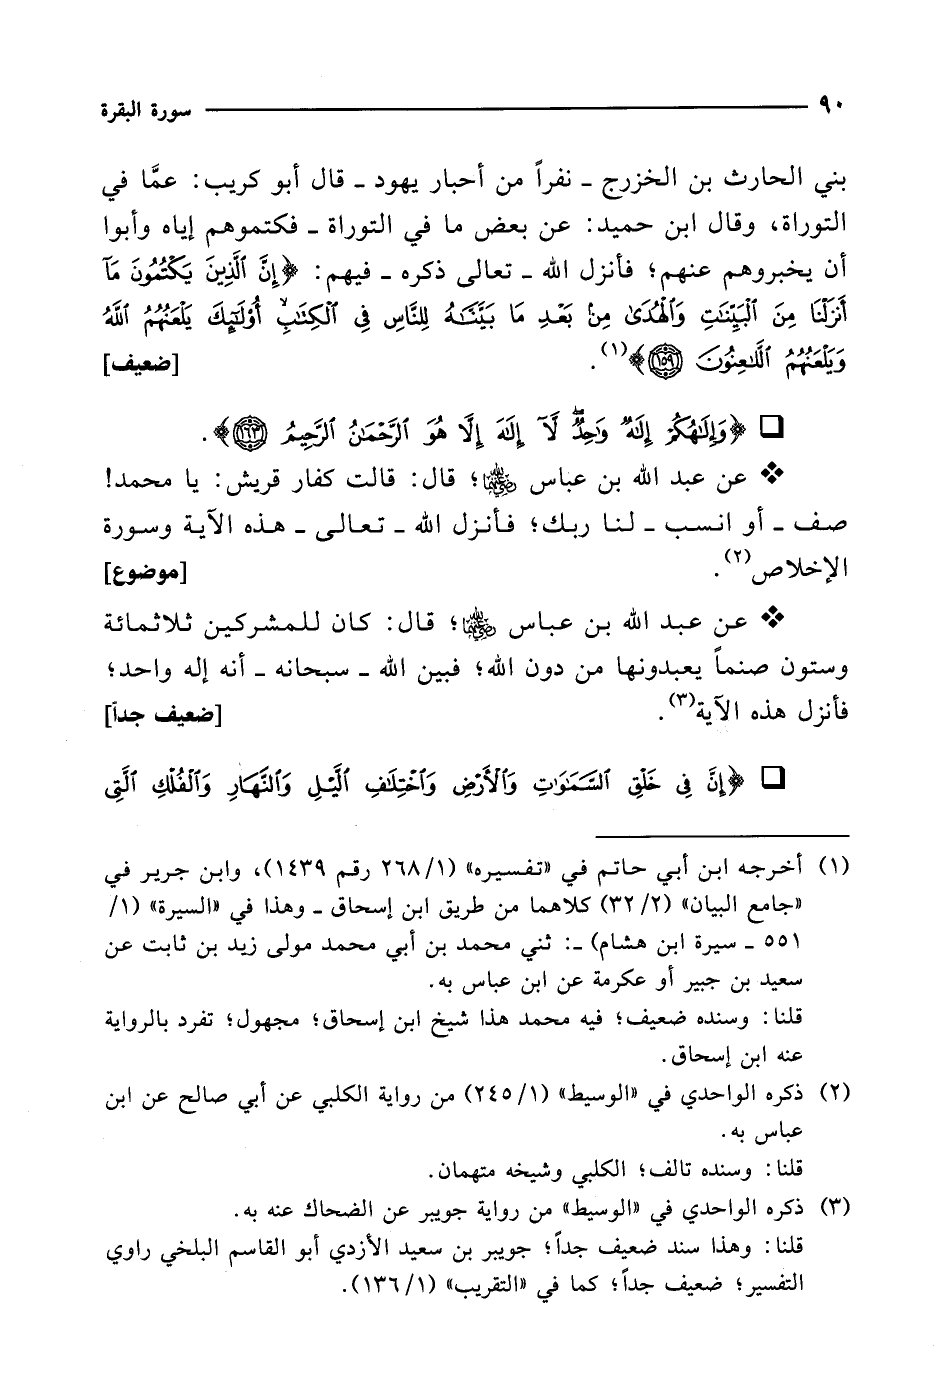 ٩٠ سورة البقرة
بني الحارث بن الخزرج ـ نفراً من أحبار يهود ـ قال أبو كريب: عمَّا في
التوراة، وقال ابن حميد: عن بعض ما في التوراة ـ فكتموهم إياه وأبوا
أن يخبروهم عنهم؛ فأنزل الله ـ تعالى ذكره ـ فيهم: ﴿إِنَّ ٱلَّذِينَ يَكْتُمُونَ مَآ
أَنزَلْنَا مِنَ ٱلْبَيِّنَٰتِ وَٱلْهُدَىٰ مِنۢ بَعْدِ مَا بَيَّنَّٰهُ لِلنَّاسِ فِى ٱلْكِتَٰبِ ۙ أُو۟لَٰٓئِكَ يَلْعَنُهُمُ ٱللَّهُ
وَيَلْعَنُهُمُ ٱللَّٰعِنُونَ ١٥٩﴾(١). [ضعيف]
❑ ﴿وَإِلَٰهُكُمْ إِلَٰهٌ وَٰحِدٌ ۖ لَّآ إِلَٰهَ إِلَّا هُوَ ٱلرَّحْمَٰنُ ٱلرَّحِيمُ ١٦٣﴾.
❖ عن عبد الله بن عباس رضي الله عنهما؛ قال: قالت كفار قريش: يا محمد!
صف ـ أو انسب ـ لنا ربك؛ فأنزل الله ـ تعالى ـ هذه الآية وسورة
الإخلاص(٢). [موضوع]
❖ عن عبد الله بن عباس رضي الله عنهما؛ قال: كان للمشركين ثلاثمائة
وستون صنماً يعبدونها من دون الله؛ فبين الله ـ سبحانه ـ أنه إله واحد؛
فأنزل هذه الآية(٣). [ضعيف جداً]
❑ ﴿إِنَّ فِى خَلْقِ ٱلسَّمَٰوَٰتِ وَٱلْأَرْضِ وَٱخْتِلَٰفِ ٱلَّيْلِ وَٱلنَّهَارِ وَٱلْفُلْكِ ٱلَّتِى
(١) أخرجه ابن أبي حاتم في «تفسيره» (١/ ٢٦٨ رقم ١٤٣٩)، وابن جرير في
«جامع البيان» (٢/ ٣٢) كلاهما من طريق ابن إسحاق ـ وهذا في «السيرة» (١/
٥٥١ ـ سيرة ابن هشام) ـ: ثني محمد بن أبي محمد مولى زيد بن ثابت عن
سعيد بن جبير أو عكرمة عن ابن عباس به.
قلنا: وسنده ضعيف؛ فيه محمد هذا شيخ ابن إسحاق؛ مجهول؛ تفرد بالرواية
عنه ابن إسحاق.
(٢) ذكره الواحدي في «الوسيط» (١/ ٢٤٥) من رواية الكلبي عن أبي صالح عن ابن
عباس به.
قلنا: وسنده تالف؛ الكلبي وشيخه متهمان.
(٣) ذكره الواحدي في «الوسيط» من رواية جويبر عن الضحاك عنه به.
قلنا: وهذا سند ضعيف جداً؛ جويبر بن سعيد الأزدي أبو القاسم البلخي راوي
التفسير؛ ضعيف جداً؛ كما في «التقريب» (١/ ١٣٦).